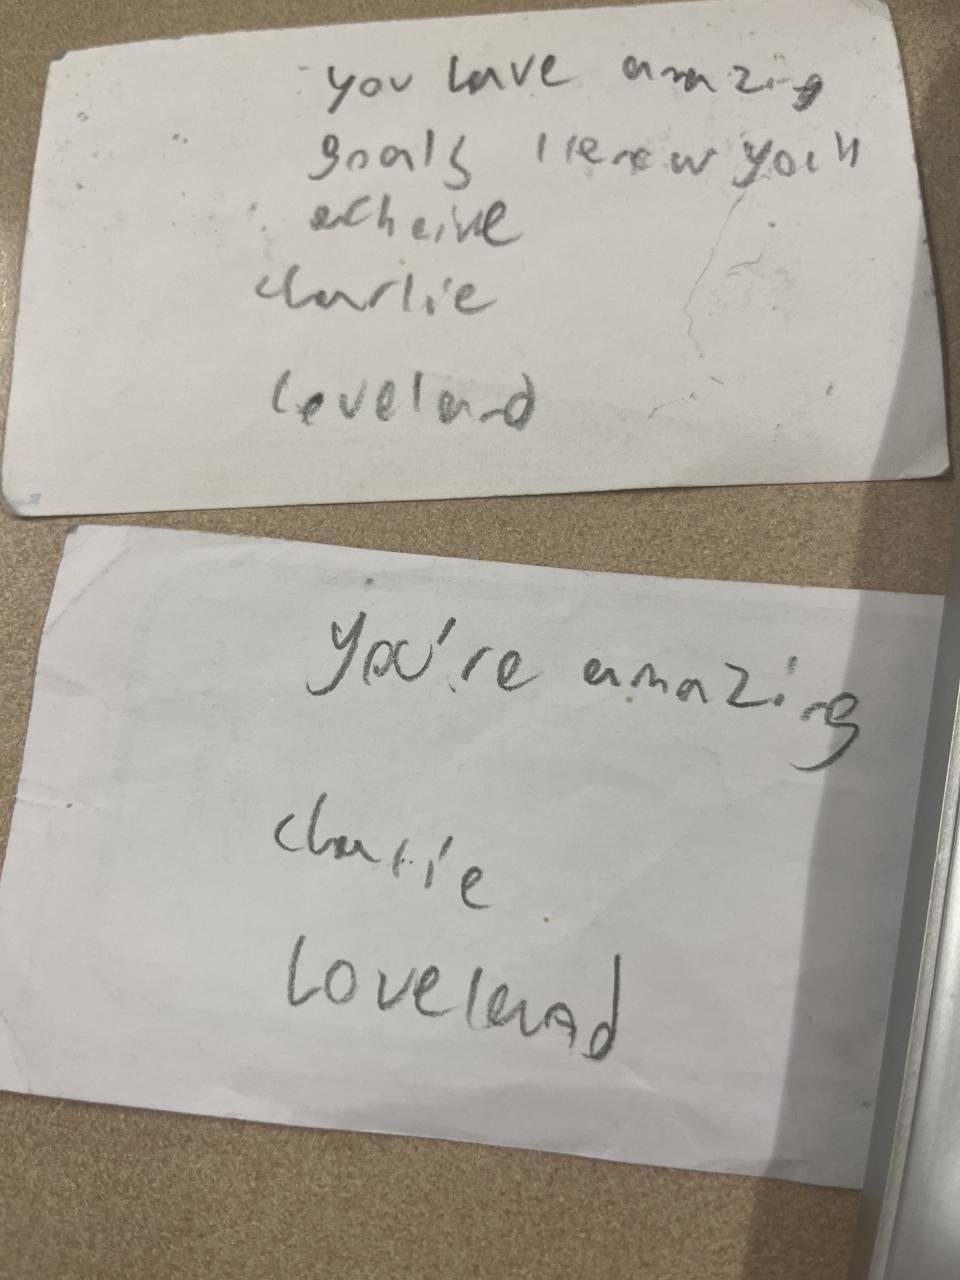 you have amazing
goals I know you'll
acheive
charlie
loveland
you're amazing
charlie
Loveland